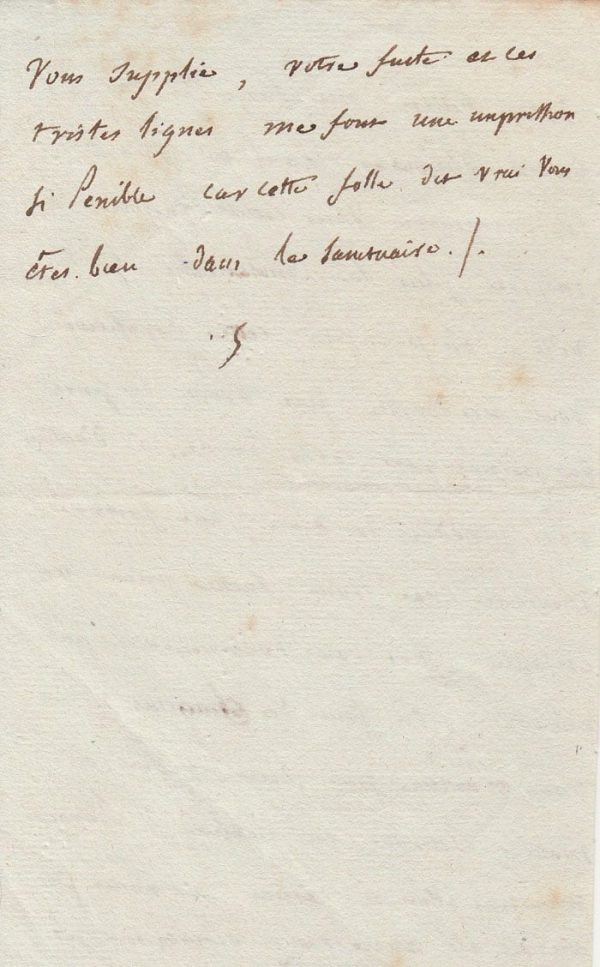 Vous supplie, votre fuite et ces
tristes lignes me font une impression
si Penible car cette folle dit vrai Vous
êtes bien dans le Sanctuaire ./.